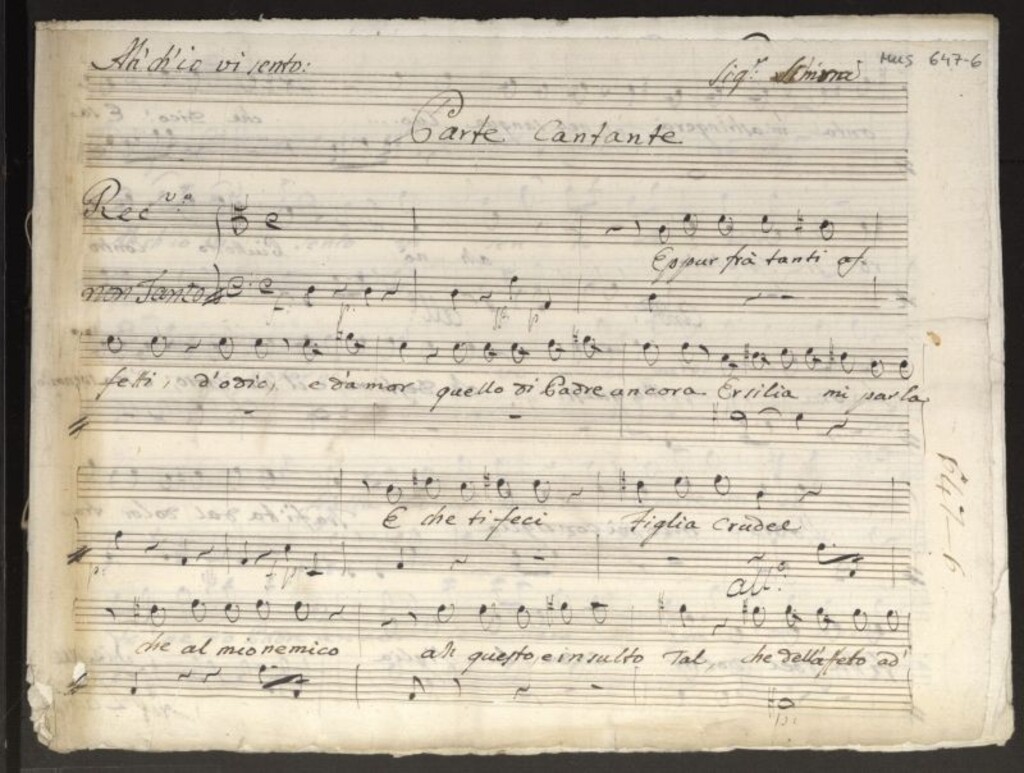 Ah' ch'io vi sento:
Sig.r Simoni
Mus 647-6
Parte Cantante
Rec.vo
Eppur frà tanti af
non Tanto
fetti, d'odio, e d'amor quello di Padre ancora Ersilia mi parla
E che ti feci Figlia Crudel
All.o
che al mio nemico ah questo, e insulto Tal che dell'affeto ad
647-6